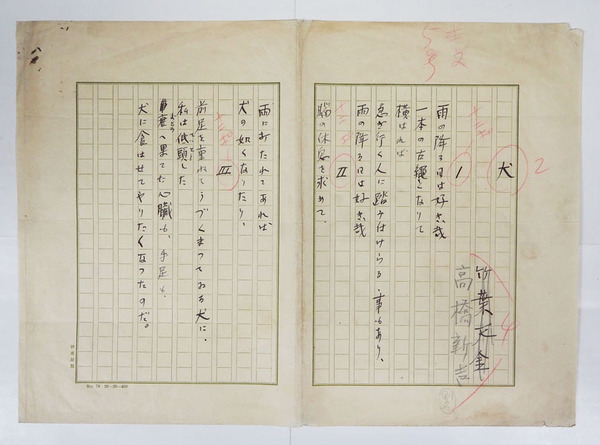 犬
高橋新吉
I
雨の降る日は好き哉
一本の古縄となりて
横はれば
急ぎ行く人に踏み付けらる、事もあり、
雨の降る日は好き哉
II
脳の休息を求めて、
雨にあたれてあれば
犬の如くなりたり、
III
前足を重ねてうづくまつてゐる犬に、
私は低頭した
果てた心臓も、手足も、
犬に食はせてやりたくなつたのだ。
No. 78 20-20-400